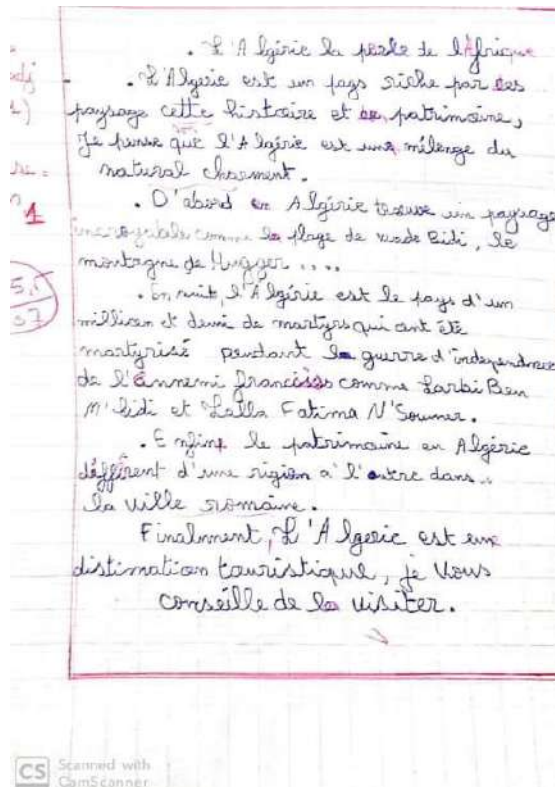 . L'Algérie la perle de l'Afrique
. L'Algerie est un pays riche par ces
paysage cette histoire et patrimoine,
Je pense que l'Algérie est une mélenge du
natural charment.
. D'abord en Algérie trouve un paysage
incroyable comme la plage de wade Bidi, le
montagne de Hugger ....
. En suit, l'Algérie est le pays d'un
million et demi de martyrs qui ont été
martyrisé pendant la guerre d'independances
de l'ennemi français comme Larbi Ben
M'hidi et Lalla Fatima N'Soumer.
. Enfine le patrimoine en Algérie
déffirent d'une rigion a l'autre dans..
la ville romaine.
Finalnment, L'Algerie est une
distimation touristique, je vous
conseille de la visiter.
1
CS Scanned with
CamScanner